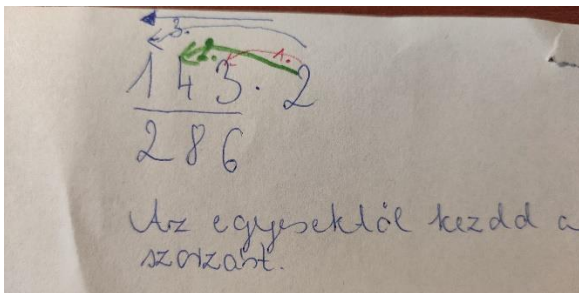 3.
2. 1.
143 · 2
286
Az egyesektől kezdd a
szorzást.